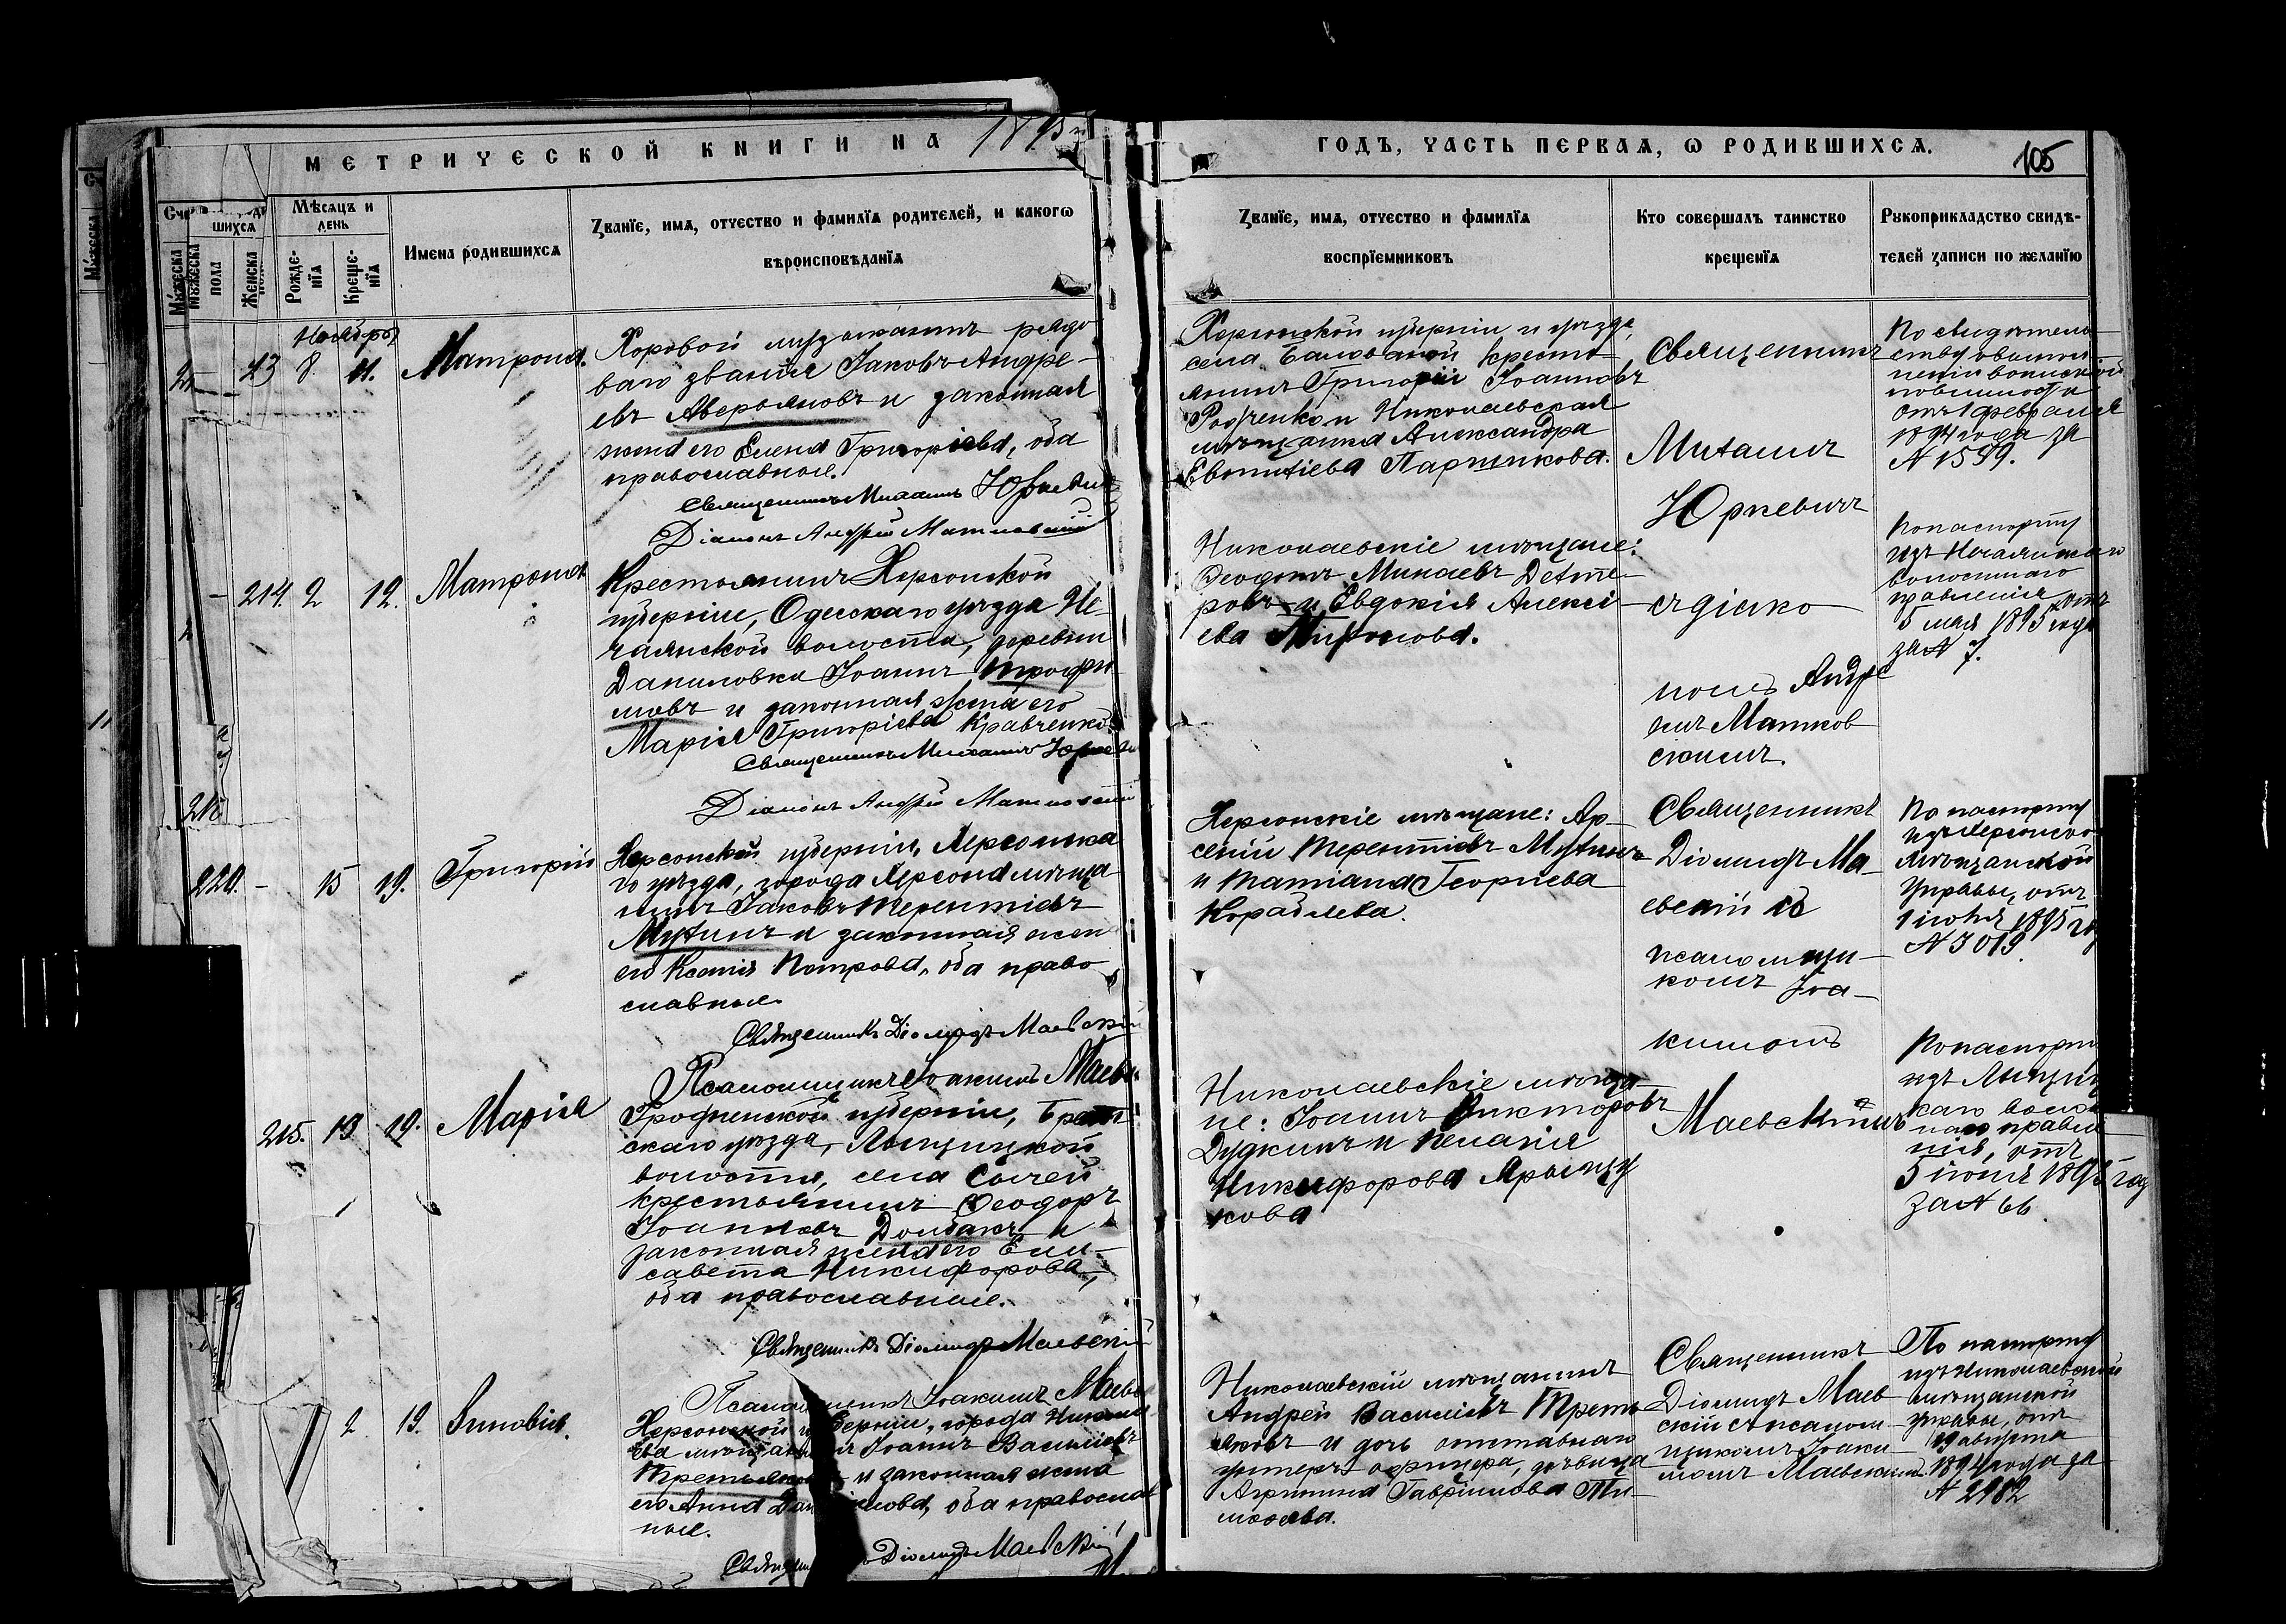 МЕТРИЧЕСКОЙ КНИГИ НА 1895
ГОДЪ, ЧАСТЬ ПЕРВАЯ, Ѡ РОДИВШИХСЯ.
105
шихся
Мужеска
Мужеска пола
Женска
Мѣсяцъ и день
Рожденія
Крещенія
Имена родившихся
Званіе, имя, отчество и фамилія родителей, и какогѡ
вѣроисповѣданія
Званіе, имя, отчество и фамилія
воспріемниковъ
Кто совершалъ таинство
крещенія
Рукоприкладство свидѣ-
телей записи по желанію
Ноября
8 11. Матрона.
Хоровой музыкантъ рядо
ваго званія Іаковъ Андре-
евъ Аверьяновъ и законная
жена его Елена Григоріева, оба
православные.
Священникъ Михаилъ Юркевичъ
Діаконъ Андрей Матковскій
Херсонской губерніи и уѣзда,
села Баловной кресть-
янинъ Григорій Іоанновъ
Родченко и Николаевская
мѣщанка Александра
Евпитіева Паршикова.
Священникъ
Михаилъ
Юркевичъ
съ діако-
номъ Андре
емъ Матков
скимъ.
По свидѣтель-
ству о выпол-
неніи воинской
повинности
отъ 1 февраля
1894 года за
№ 1599.
- 214. 2 12. Матрона
Крестьянинъ Херсонской
губерніи, Одесскаго уѣзда Не-
чаянской волости, деревни
Даниловки Іоаннъ Трофи
мовъ и законная жена его
Марія Григоріева Кравченко
Священникъ Михаилъ
Діаконъ Андрей Матковскій
Николаевскіе мѣщане:
Ѳеодотъ Минаевъ Дехте-
ровъ и Евдокія Алексі-
ева Миронова.
По паспорту
изъ Нечаянскаго
волостнаго
правленія отъ
5 мая 1895 года
за № 7.
220. - 15 19. Григорій
Херсонской губерніи, Херсонска
го уѣзда, города Херсона мѣща
нинъ Іаковъ Терентіевъ
Мухинъ и законная жена
его Ксенія Петрова, оба право
славные
Священникъ Діомидъ Маевскій
Псаломщикъ Іоакимъ Маевс
Херсонскіе мѣщане: Ар-
сеній Терентіевъ Мухинъ
и Татіана Георгіева
Кораблева.
Священникъ
Діомидъ Ма-
евскій съ
псаломщи-
комъ Іоа-
кимомъ
Маевскимъ
По паспорту
изъ Херсонско
Мѣщанской
Управы, отъ
1 іюня 1895 го
№ 3019.
215. 13 19. Марія
Гродненской губерніи, Брест
скаго уѣзда, Лыщицкой
волости, села Сычей
крестьянинъ Ѳеодоръ
Іоанновъ Долбакъ и
законная жена его Ели-
савета Никифорова,
оба православные.
Священникъ Діомидъ Маевскій
Псаломщикъ Іоакимъ Маевс
Николаевскіе мѣща
не: Іоаннъ Викторовъ
Дудкинъ и Пелагія
Никифорова Ярынзу
кова
По паспорту
изъ Лыщиц
каго волост
наго правле
нія, отъ
5 іюня 1895 год
за № 66.
2. 19. Зиновія.
Херсонской губерніи, города Никола
ева мѣщанинъ Іоаннъ Васильевъ
Третьяковъ и законная жена
его Анна Даниилова, оба православ
ные.
Священникъ Діомидъ Маевскій
Николаевскій мѣщанинъ
Андрей Васильевъ Треть
яковъ и дочь отставнаго
унтеръ офицера, дѣвица
Агрипина Гавріилова Ти-
моѳеева.
Священникъ
Діомидъ Маев
скій съ псалом-
щикомъ Іоаки-
момъ Маевскимъ.
По паспорту
изъ Николаевской
мѣщанской
управы, отъ
19 августа
1894 года за
№ 2982